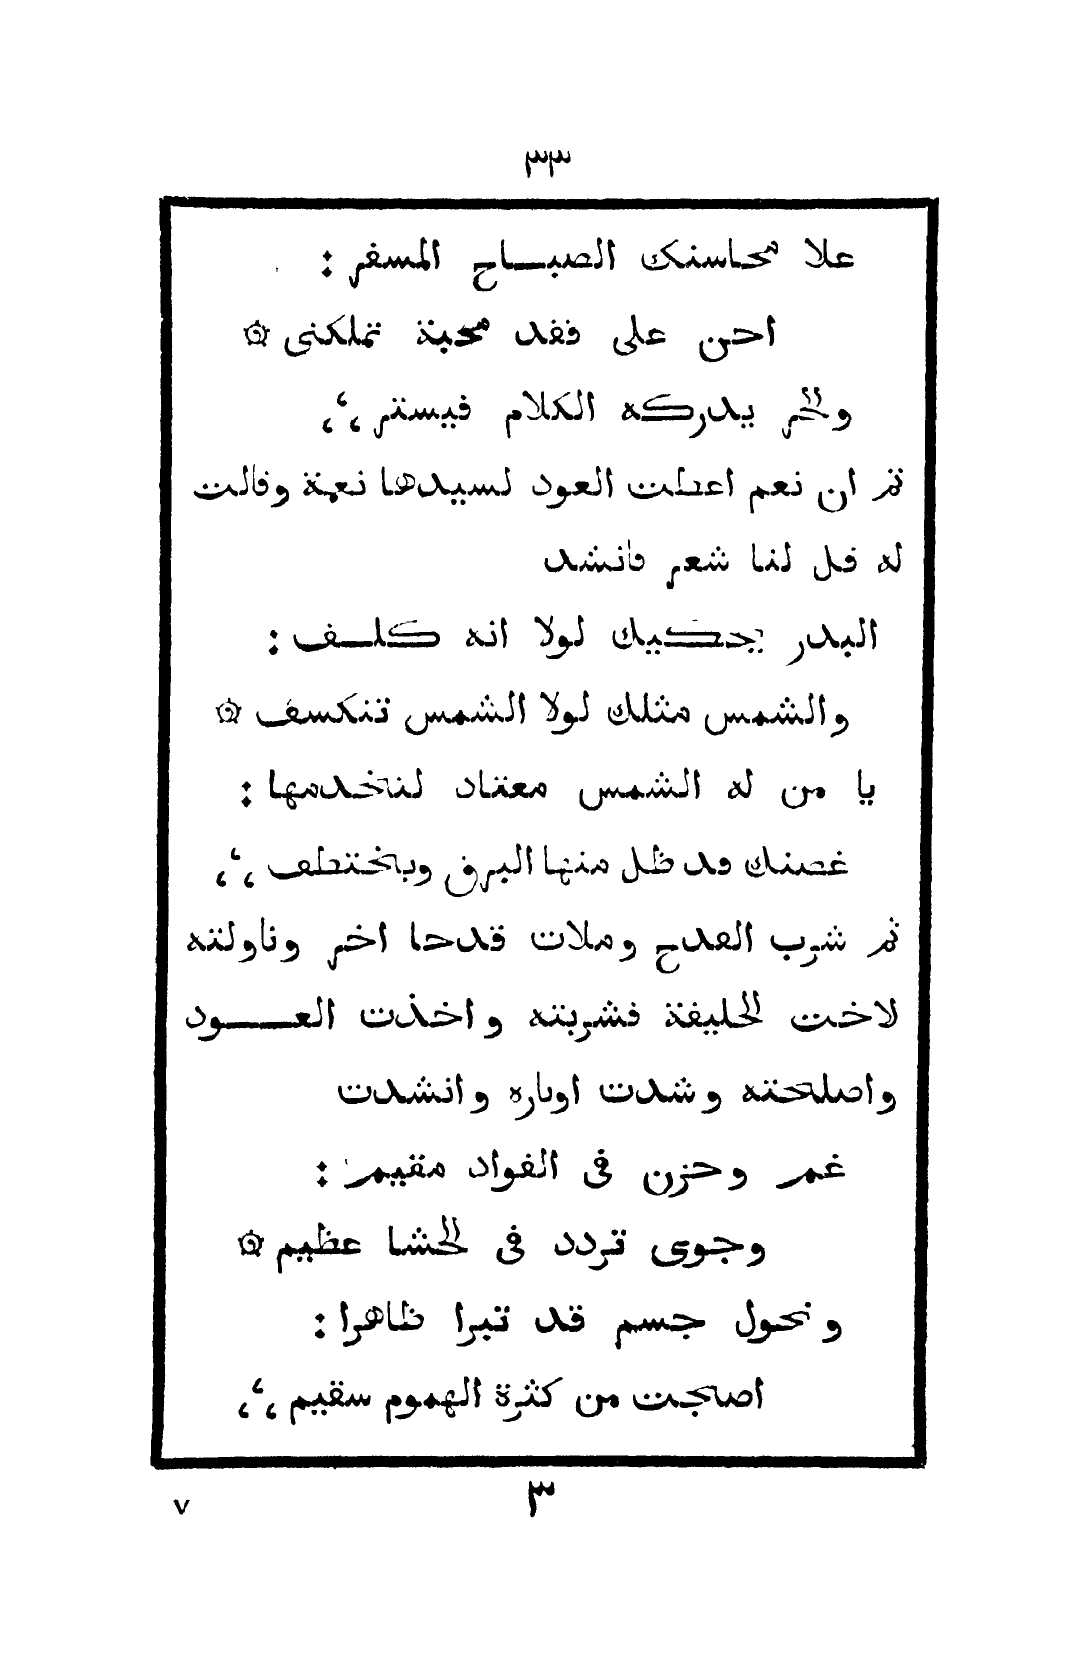 ٣٣
علا محاسنك الصباح المسفر :
احن على فقد محبة تملكنى ۞
والحر يدركه الكلام فيستر ،‘،
ثم ان نعم اعطت العود لسيدها نعمة وقالت
له قل لنا شعر فانشد
البدر يحكيك لولا انه كلف :
والشمس مثلك لولا الشمس تنكسف ۞
يا من له الشمس معتاد لنخدمها :
غصنك قد ظل منها البرق ويختطف ،‘،
ثم شرب القدح وملات قدحا اخر وناولته
لاخت الخليفة فشربته واخذت العود
واصلحته وشدت اوتاره وانشدت
غمر وحزن فى الفواد مقيمر :
وجوى تردد فى الحشا عظيم ۞
ونحول جسم قد تبرا ظاهرا :
اصبحت من كثرة الهموم سقيم ،‘،
٣
٧